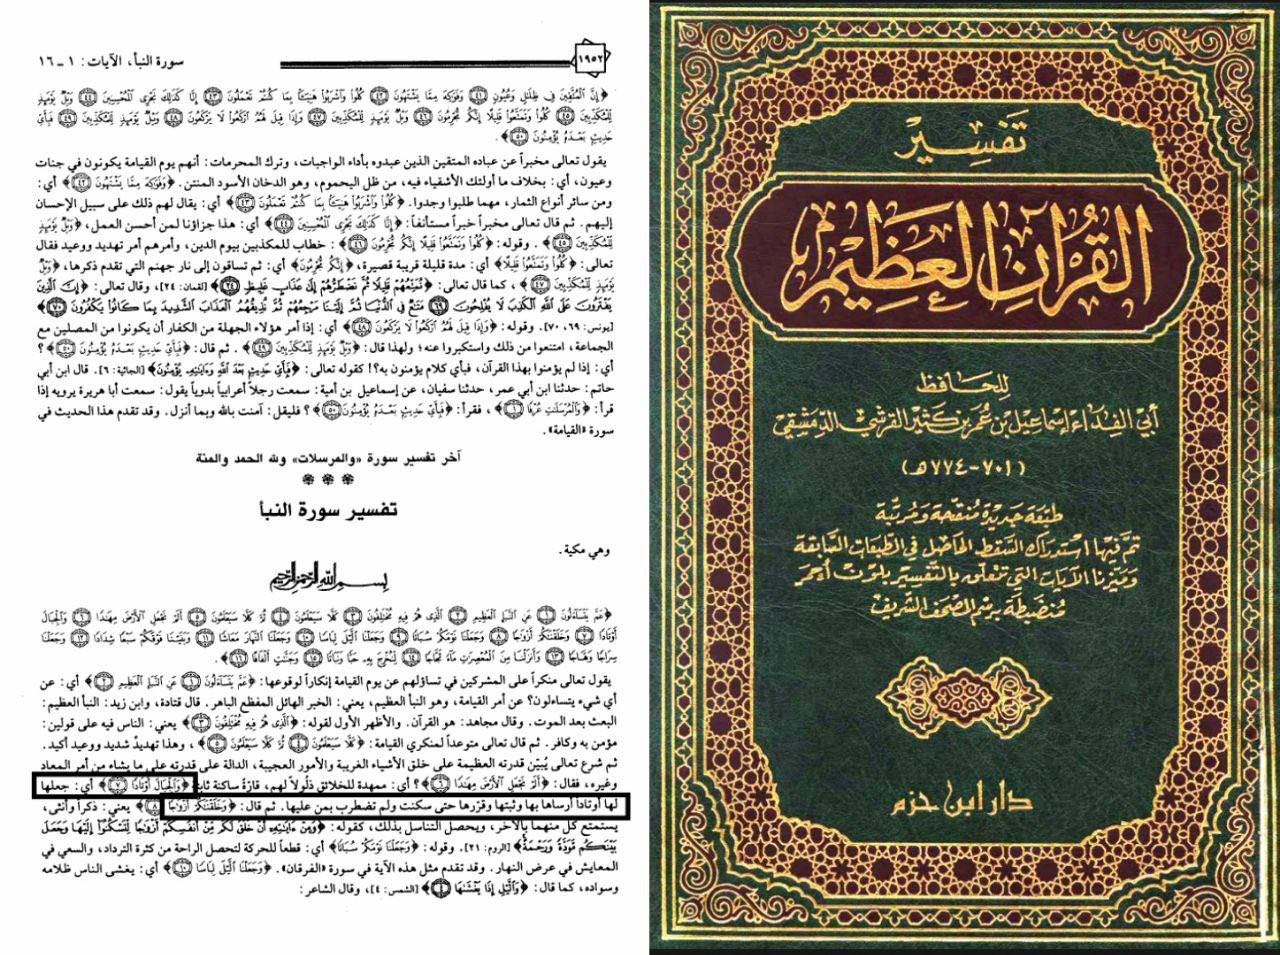 سورة النبأ، الآيات: ١ ـ ١٦
١٩٥٢
﴿إِنَّ الْمُتَّقِينَ فِي ظِلَالٍ وَعُيُونٍ ﴿٤١﴾ وَفَوَاكِهَ مِمَّا يَشْتَهُونَ ﴿٤٢﴾ كُلُوا وَاشْرَبُوا هَنِيئًا بِمَا كُنتُمْ تَعْمَلُونَ ﴿٤٣﴾ إِنَّا كَذَلِكَ نَجْزِي الْمُحْسِنِينَ ﴿٤٤﴾ وَيْلٌ يَوْمَئِذٍ
لِلْمُكَذِّبِينَ ﴿٤٥﴾ كُلُوا وَتَمَتَّعُوا قَلِيلًا إِنَّكُم مُّجْرِمُونَ ﴿٤٦﴾ وَيْلٌ يَوْمَئِذٍ لِلْمُكَذِّبِينَ ﴿٤٧﴾ وَإِذَا قِيلَ لَهُمُ ارْكَعُوا لَا يَرْكَعُونَ ﴿٤٨﴾ وَيْلٌ يَوْمَئِذٍ لِلْمُكَذِّبِينَ ﴿٤٩﴾ فَبِأَيِّ
حَدِيثٍ بَعْدَهُ يُؤْمِنُونَ ﴿٥٠﴾
يقول تعالى مخبراً عن عباده المتقين الذين عبدوه بأداء الواجبات، وترك المحرمات: أنهم يوم القيامة يكونون في جنات
وعيون، أي: بخلاف ما أولئك الأشقياء فيه، من ظل اليحموم، وهو الدخان الأسود المنتن. ﴿وَفَوَاكِهَ مِمَّا يَشْتَهُونَ ﴿٤٢﴾﴾ أي:
ومن سائر أنواع الثمار، مهما طلبوا وجدوا. ﴿كُلُوا وَاشْرَبُوا هَنِيئًا بِمَا كُنتُمْ تَعْمَلُونَ ﴿٤٣﴾﴾ أي: يقال لهم ذلك على سبيل الإحسان
إليهم. ثم قال تعالى مخبراً خبراً مستأنفاً: ﴿إِنَّا كَذَلِكَ نَجْزِي الْمُحْسِنِينَ ﴿٤٤﴾﴾ أي: هذا جزاؤنا لمن أحسن العمل، ﴿وَيْلٌ يَوْمَئِذٍ
لِلْمُكَذِّبِينَ ﴿٤٥﴾﴾. وقوله: ﴿كُلُوا وَتَمَتَّعُوا قَلِيلًا إِنَّكُم مُّجْرِمُونَ ﴿٤٦﴾﴾: خطاب للمكذبين بيوم الدين، وأمرهم أمر تهديد ووعيد فقال
تعالى: ﴿كُلُوا وَتَمَتَّعُوا قَلِيلًا﴾ أي: مدة قليلة قريبة قصيرة، ﴿إِنَّكُم مُّجْرِمُونَ﴾ أي: ثم تساقون إلى نار جهنم التي تقدم ذكرها، ﴿وَيْلٌ
يَوْمَئِذٍ لِلْمُكَذِّبِينَ ﴿٤٧﴾﴾، كما قال تعالى: ﴿نُمَتِّعُهُمْ قَلِيلًا ثُمَّ نَضْطَرُّهُمْ إِلَى عَذَابٍ غَلِيظٍ ﴿٢٤﴾﴾ [لقمان: ٢٤]، وقال تعالى: ﴿إِنَّ الَّذِينَ
يَفْتَرُونَ عَلَى اللَّهِ الْكَذِبَ لَا يُفْلِحُونَ ﴿٦٩﴾ مَتَاعٌ فِي الدُّنْيَا ثُمَّ إِلَيْنَا مَرْجِعُهُمْ ثُمَّ نُذِيقُهُمُ الْعَذَابَ الشَّدِيدَ بِمَا كَانُوا يَكْفُرُونَ ﴿٧٠﴾﴾
[يونس: ٦٩، ٧٠]. وقوله: ﴿وَإِذَا قِيلَ لَهُمُ ارْكَعُوا لَا يَرْكَعُونَ ﴿٤٨﴾﴾ أي: إذا أمر هؤلاء الجهلة من الكفار أن يكونوا من المصلين مع
الجماعة، امتنعوا من ذلك واستكبروا عنه؛ ولهذا قال: ﴿وَيْلٌ يَوْمَئِذٍ لِلْمُكَذِّبِينَ ﴿٤٩﴾﴾. ثم قال: ﴿فَبِأَيِّ حَدِيثٍ بَعْدَهُ يُؤْمِنُونَ ﴿٥٠﴾﴾؟
أي: إذا لم يؤمنوا بهذا القرآن، فبأي كلام يؤمنون به؟! كقوله تعالى: ﴿فَبِأَيِّ حَدِيثٍ بَعْدَ اللَّهِ وَءَايَاتِهِ يُؤْمِنُونَ﴾ [الجاثية: ٦]. قال ابن أبي
حاتم: حدثنا ابن أبي عمر، حدثنا سفيان، عن إسماعيل بن أمية: سمعت رجلاً أعرابياً بدوياً يقول: سمعت أبا هريرة يرويه إذا
قرأ: ﴿وَالْمُرْسَلَاتِ عُرْفًا ﴿١﴾﴾، فقرأ: ﴿فَبِأَيِّ حَدِيثٍ بَعْدَهُ يُؤْمِنُونَ ﴿٥٠﴾﴾؟ فليقل: آمنت بالله وبما أنزل. وقد تقدم هذا الحديث في
سورة «القيامة».
آخر تفسير سورة «والمرسلات» ولله الحمد والمنة
تفسير سورة النبأ
وهي مكية.
بسم الله الرحمن الرحيم
﴿عَمَّ يَتَسَاءَلُونَ ﴿١﴾ عَنِ النَّبَإِ الْعَظِيمِ ﴿٢﴾ الَّذِي هُمْ فِيهِ مُخْتَلِفُونَ ﴿٣﴾ كَلَّا سَيَعْلَمُونَ ﴿٤﴾ ثُمَّ كَلَّا سَيَعْلَمُونَ ﴿٥﴾ أَلَمْ نَجْعَلِ الْأَرْضَ مِهَادًا ﴿٦﴾ وَالْجِبَالَ
أَوْتَادًا ﴿٧﴾ وَخَلَقْنَاكُمْ أَزْوَاجًا ﴿٨﴾ وَجَعَلْنَا نَوْمَكُمْ سُبَاتًا ﴿٩﴾ وَجَعَلْنَا الَّيْلَ لِبَاسًا ﴿١٠﴾ وَجَعَلْنَا النَّهَارَ مَعَاشًا ﴿١١﴾ وَبَنَيْنَا فَوْقَكُمْ سَبْعًا شِدَادًا ﴿١٢﴾ وَجَعَلْنَا
سِرَاجًا وَهَّاجًا ﴿١٣﴾ وَأَنزَلْنَا مِنَ الْمُعْصِرَاتِ مَاءً ثَجَّاجًا ﴿١٤﴾ لِنُخْرِجَ بِهِ حَبًّا وَنَبَاتًا ﴿١٥﴾ وَجَنَّاتٍ أَلْفَافًا ﴿١٦﴾﴾.
يقول تعالى منكراً على المشركين في تساؤلهم عن يوم القيامة إنكاراً لوقوعها: ﴿عَمَّ يَتَسَاءَلُونَ ﴿١﴾ عَنِ النَّبَإِ الْعَظِيمِ ﴿٢﴾﴾ أي: عن
أي شيء يتساءلون؟ عن أمر القيامة، وهو النبأ العظيم، يعني: الخبر الهائل المفظع الباهر. قال قتادة، وابن زيد: النبأ العظيم:
البعث بعد الموت. وقال مجاهد: هو القرآن. والأظهر الأول لقوله: ﴿الَّذِي هُمْ فِيهِ مُخْتَلِفُونَ ﴿٣﴾﴾ يعني: الناس فيه على قولين:
مؤمن به وكافر. ثم قال تعالى متوعداً لمنكري القيامة: ﴿كَلَّا سَيَعْلَمُونَ ﴿٤﴾ ثُمَّ كَلَّا سَيَعْلَمُونَ ﴿٥﴾﴾، وهذا تهديدٌ شديد ووعيد أكيد.
ثم شرع تعالى يُبيّن قدرته العظيمة على خلق الأشياء الغريبة والأمور العجيبة، الدالة على قدرته على ما يشاء من أمر المعاد
وغيره، فقال: ﴿أَلَمْ نَجْعَلِ الْأَرْضَ مِهَادًا ﴿٦﴾﴾؟ أي: ممهدة للخلائق ذَلُولاً لهم، قارّةً ساكنة ثابتة ﴿وَالْجِبَالَ أَوْتَادًا ﴿٧﴾﴾ أي: جعلها
لها أوتاداً أرساها بها وثبتها وقرّرها حتى سكنت ولم تضطرب بمن عليها. ثم قال: ﴿وَخَلَقْنَاكُمْ أَزْوَاجًا ﴿٨﴾﴾ يعني: ذكراً وأنثى،
يستمتع كل منهما بالآخر، ويحصل التناسل بذلك، كقوله: ﴿وَمِنْ ءَايَاتِهِ أَنْ خَلَقَ لَكُم مِّنْ أَنفُسِكُمْ أَزْوَاجًا لِّتَسْكُنُوا إِلَيْهَا وَجَعَلَ
بَيْنَكُم مَّوَدَّةً وَرَحْمَةً﴾ [الروم: ٢١]. وقوله: ﴿وَجَعَلْنَا نَوْمَكُمْ سُبَاتًا﴾ أي: قطعاً للحركة لتحصل الراحة من كثرة الترداد، والسعي في
المعايش في عرض النهار. وقد تقدم مثل هذه الآية في سورة «الفرقان». ﴿وَجَعَلْنَا الَّيْلَ لِبَاسًا ﴿١٠﴾﴾ أي: يغشى الناس ظلامه
وسواده، كما قال: ﴿وَالَّيْلِ إِذَا يَغْشَاهَا ﴿٤﴾﴾ [الشمس: ٤]، وقال الشاعر:
تفسير
القرآن العظيم
للحافظ
أبي الفداء إسماعيل بن عمر بن كثير القرشي الدمشقي
(٧٠١-٧٧٤ هـ)
طبعة جديدة منقحة ومرتبة
تم فيها استدراك السقط الحاصل في الطبعات السابقة
وميزنا الآيات التي تتعلق بالتفسير بلون أحمر
منضبطة برسم المصحف الشريف
دار ابن حزم